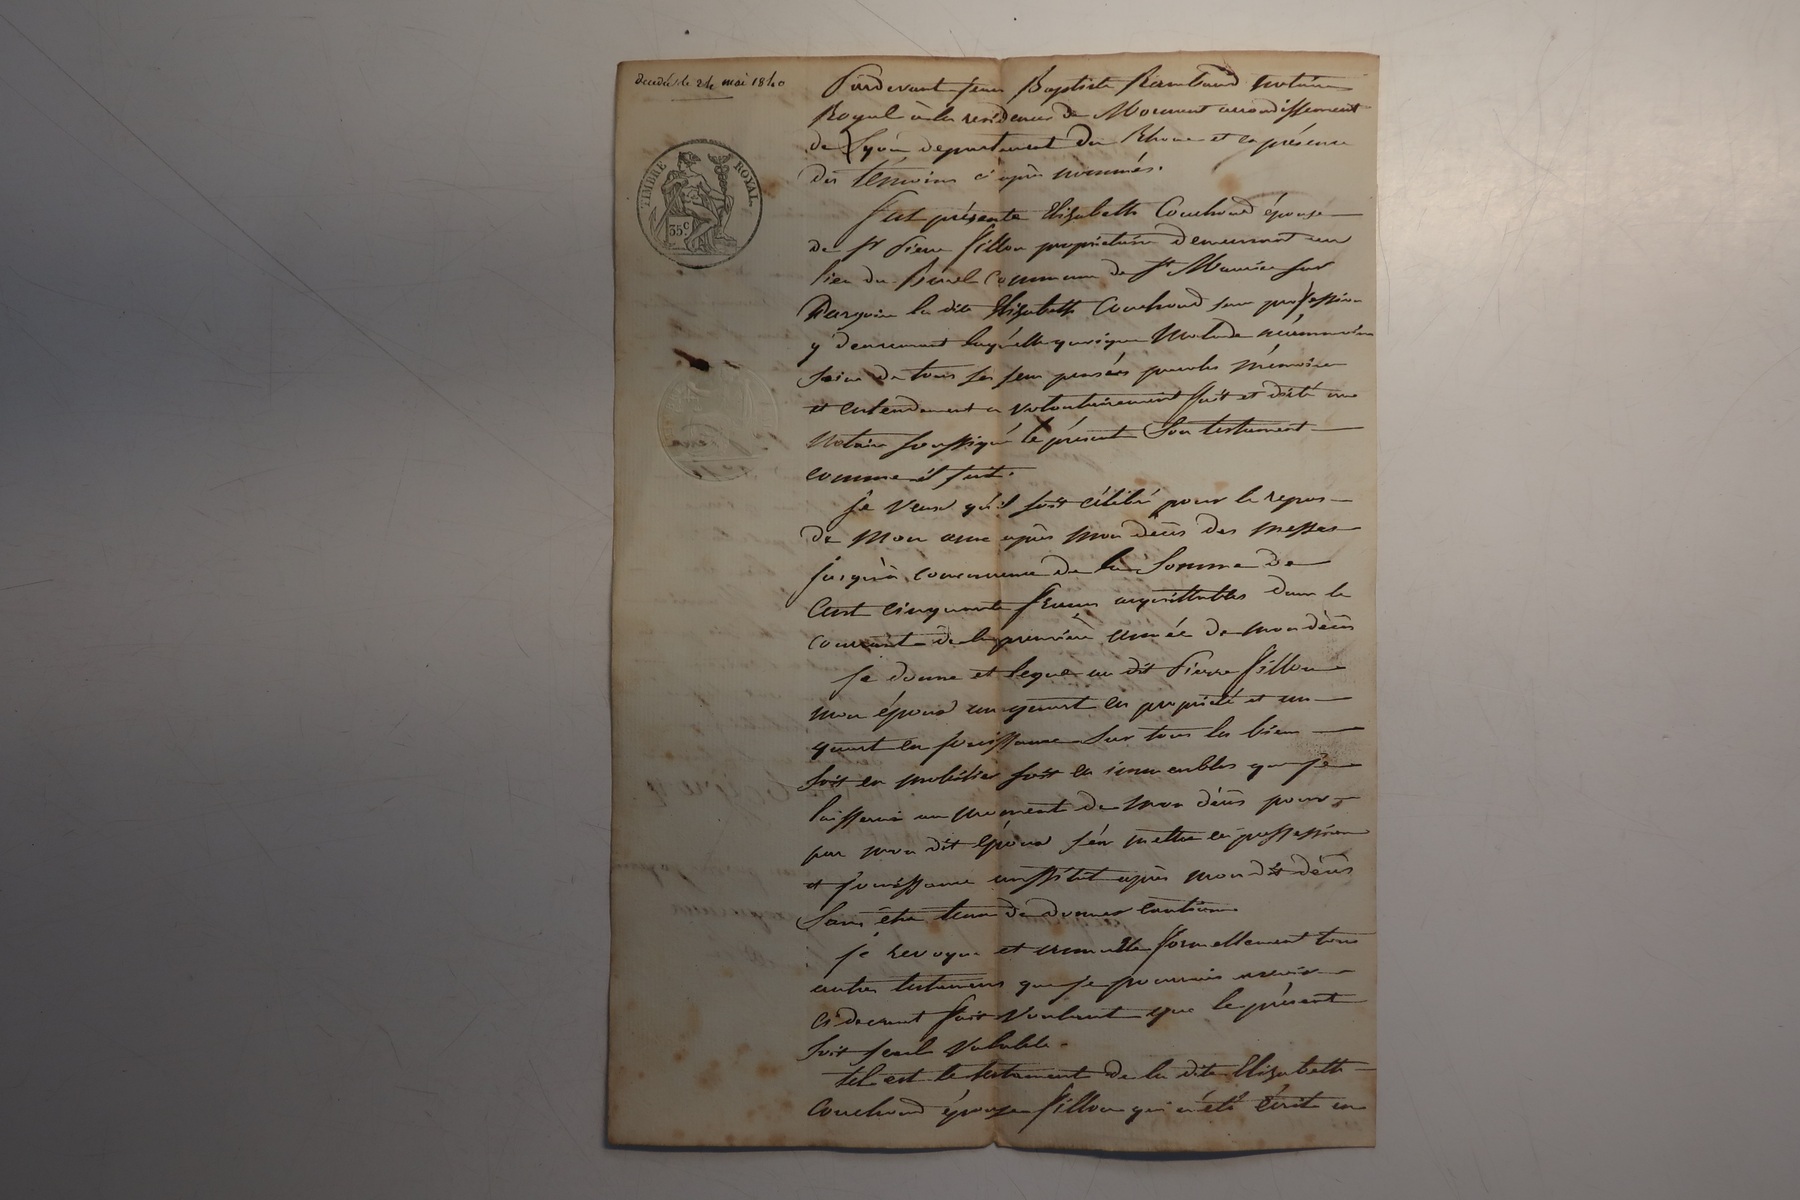 decedée le 24 mai 1840
TIMBRE ROYAL
35c
Pardevant Jean Baptiste Rambaud notaire
Royal à la residence de Mornant arrondissement
de Lyon departement du Rhone et en présence
des témoins ci après nommés.
fut présente Elizabeth Couchoud épouse
de Sr Pierre fillon propriétaire demeurant au
lieu du commune de St Maurice sur
Dargoire la dite Elizabeth Couchoud sans profession
y demeurant laquelle quoique Malade néanmoins
Saine de tous ses sens pensées parole mémoire
et entendement a volontairement fait et dicté au
Notaire soussigné le présent Son testament
comme il suit.
je veux qu'il soit célébré pour le repos
de mon ame après mon décès des messes
jusqu'à concurrence de la Somme de
Cent cinquante francs acquittables dans le
courant de la première année de mon décès
Je donne et legue au dit Pierre fillon
mon époux un quart en propriété et un
quart en jouissance sur tous les biens
soit en mobilier soit en immeubles que je
laisserai au moment de mon décès pour
par mon dit époux s'en mettre en possession
et jouissance aussitôt après mon dit décès
Sans être tenu de donner caution
je revoque et annulle formellement tous
autres testamens que je pourrais avoir
ci devant fait voulant que le présent
soit seul valable.
tel est le testament de la dite Elizabeth
Couchoud épouse fillon qui a été écrit en